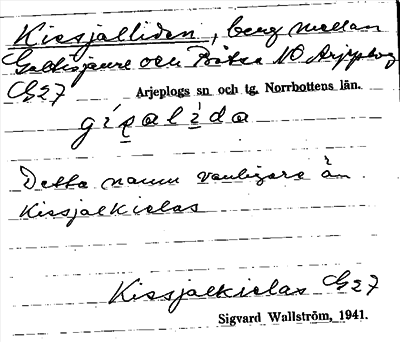 Kissjalliden, berg mellan
Galtisjaure och Båtsa NO Arjeplog
G27 Arjeplogs sn och tg. Norrbottens län.
gísalìda
Detta namn vanligare än
Kissjalkielas
Kissjalkielas G27
Sigvard Wallström, 1941.